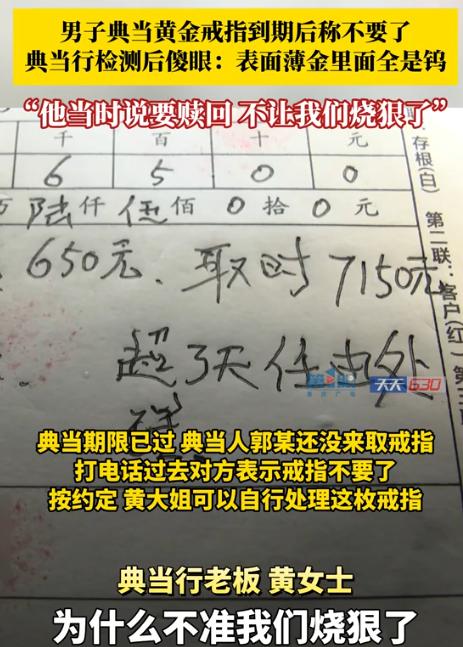 男子典当黄金戒指到期后称不要了
典当行检测后傻眼：表面薄金里面全是钨
“他当时说要赎回 不让我们烧狠了”
千 百 十 元
6 5 0 0
万 陆 仟 伍 佰 0 拾 0 元
650元、取时7150元
超3天任由处
存根(白) 第二联：客户(红)
天天630
典当期限已过 典当人郭某还没来取戒指
打电话过去对方表示戒指不要了
按约定 黄大姐可以自行处理这枚戒指
典当行老板 黄女士
为什么不准我们烧狠了